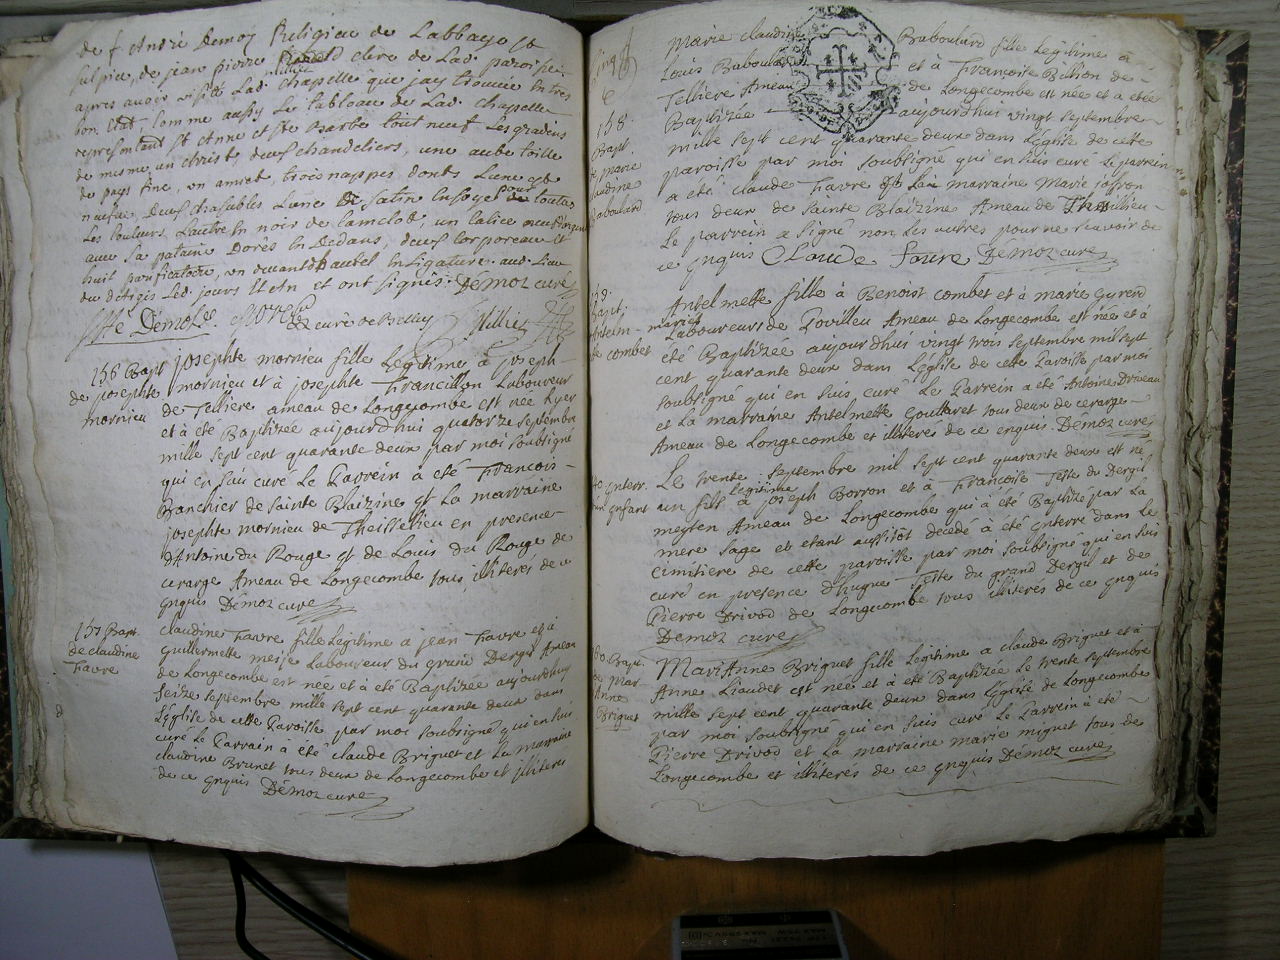 de f. André Demoz Religieu de Labbaye st
sulpice, de jean pierre clerc de Lad. paroisse
apres avoir visité Lad. chapelle que jay trouvée en tres
bon Etat comme aussy Le tableau de Lad. chapelle
representant st Anne et ste Barbe tout neuf Les gradins
de mesme, un christ, deux chandeliers, une aube toille
de pays fine, un amict, trois nappes, donts L'une est
neufve, deux chasubles L'une de satin pour toutes
Les couleurs, L'autre en noir de camelot, un calice
avec sa pataine Dorés en Dedans, deux corporeaux et
huit purificatoire, un devant d'autel en Ligature. aud. Lieu
Led. jours et An et ont signés. Démoz curé
Démoz
curé de Belley
156 Bapt
de josephte
mornieu
josephte mornieu fille Legitime à joseph
mornieu et à josephte francillon Laboureur
de Telliere ameau de Longecombe est née hyer
et à été Baptizée aujourd'hui quatorze septembre
mille sept cent quarante deux par moi soubsigné
qui en suis curé Le Parrein à été François
Banchier de sainte Blaizine et La marraine
josephte mornieu de Theillelieu en presence
d'Antoine du Rouge et de Louis du Rouge de
cerarge Ameau de Longecombe tous illiterés de ce
enquis Démoz curé
157 Bapt.
de claudine
favre
claudine favre fille Legitime a jean favre et à
guillermette Laboureur du grand Dergit Ameau
de Longecombe est née et à été Baptizée aujourdhuy
seize septembre mille sept cent quarante deux dans
L'église de cette Paroisse par moi soubsigné qui en suis
curé Le Parrain à été claude Briguet et La marraine
claudine Brunet tous deux de Longecombe et illiterés
de ce enquis Démoz curé
158.
Bapt.
de marie
claudine
Baboulard
Marie claudine Baboulard fille Legitime à
Louis Baboulard et à Françoise Billion de
Telliere Ameau de Longecombe est née et a étée
Baptizée aujourdhui vingt septembre
mille sept cent quarante deux dans L'église de cette
paroisse par moi soubsigné qui en suis curé Le parrein
a eté claude Favre et La marraine Marie joffron
tous deux de sainte Blaizine Ameau de Theillieu
Le parrein a signé non Les autres pour ne scavoir de
ce enquis Claude Favre Démoz curé
Bapt.
combet
Antelmette fille à Benoist combet et à marie Gyrerd
mariés Laboureurs de Rovilleu Ameau de Longecombe est née et à
eté Baptizée aujourdhui vingt trois septembre mil sept
cent quarante deux dans L'église de cette Paroisse par moi
soubsigné qui en suis curé Le Parrein a été Antoine Driveau
et La marraine Antelmette Gouttaret tous deux de cerarge
Ameau de Longecombe et illiterés de ce enquis. Démoz curé
enterr.
enfant
Le trente septembre mil sept cent quarante deux est né
un fils legitime à joseph Borron et à Francoise Teste du Dergit
meyten Ameau de Longecombe qui à été Baptizé par La
mere sage et etant aussitôt decédé à été enterré dans Le
cimitiere de cette paroisse par moi soubsigné qui en suis
curé en presence d'hugue Teste du grand Dergit et de
Pierre Drivod de Longecombe tous illiterés de ce enquis
Démoz curé
Bapt.
de Mari
Anne
Briguet
MariAnne Briguet fille Legitime a claude Briguet et à
Anne Liaudet est née et à été Baptizée Le trente septembre
mille sept cent quarante deux dans L'église de Longecombe
par moi soubsigné qui en suis curé Le Parrein à eté
Pierre Drivod et La marraine marie miguet tous de
Longecombe et illiterés de ce enquis Démoz curé